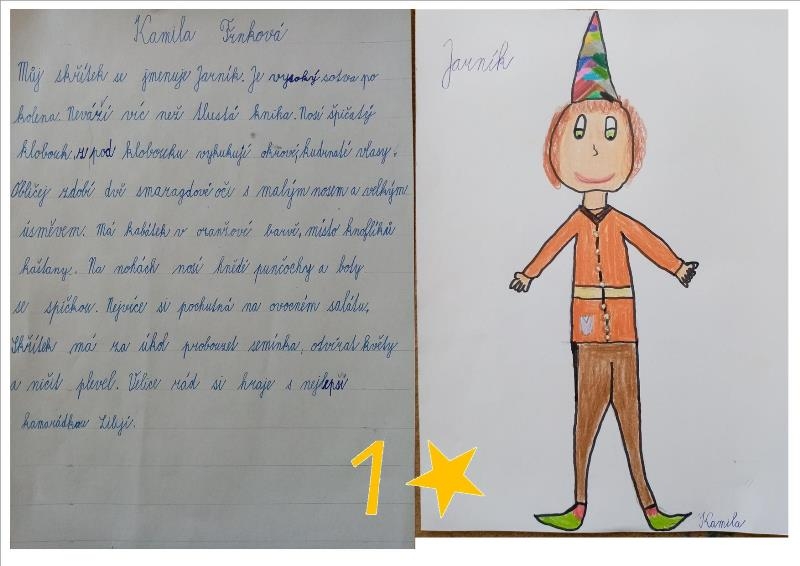 Kamila Trnková
Můj skřítek se jmenuje Jarník. Je vysoký sotva po
kolena. Neváží víc než tlustá kniha. Nosí špičatý
klobouk, z pod kloboučku vykukují okrové, kudrnaté vlasy.
Obličej zdobí dvě smaragdové oči s malým nosem a velkým
úsměvem. Má kabátek v oranžové barvě, místo knoflíků
kaštany. Na nohách nosí hnědé punčochy a boty
se špičkou. Nejvíce si pochutná na ovocném salátu.
Skřítek má za úkol probouzet semínka, otvírat květy
a ničit plevel. Velice rád si hraje s nejlepší
kamarádkou Libljí.
Jarník
Kamila
1